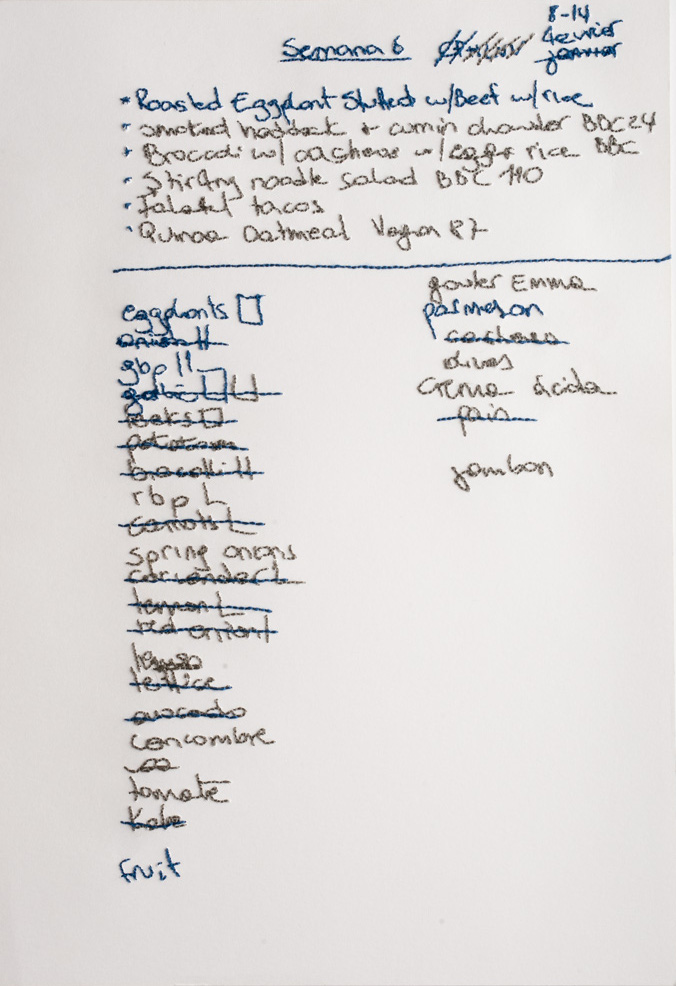 Semana 6
8-14
fevrier
janvier
* Roasted Eggplant Stuffed w/Beef w/rice
• smoked haddock + cumin chowder BBC 24
* Broccoli w/ cashews w/ egg rice BBC
• Stirfry noodle salad BBC 110
• Falafel tacos
• Quinoa Oatmeal Vegan 87
eggplants
onion
gbp ||
leeks
potatoes
brocolli
rbp L
carrots L
spring onions
coriander L
lemon L
red onion
lettice
avocado
concombre
tomate
Kale
fruit
gouter Emma
parmesan
cashews
olives
Crema ácida
pain
jambon